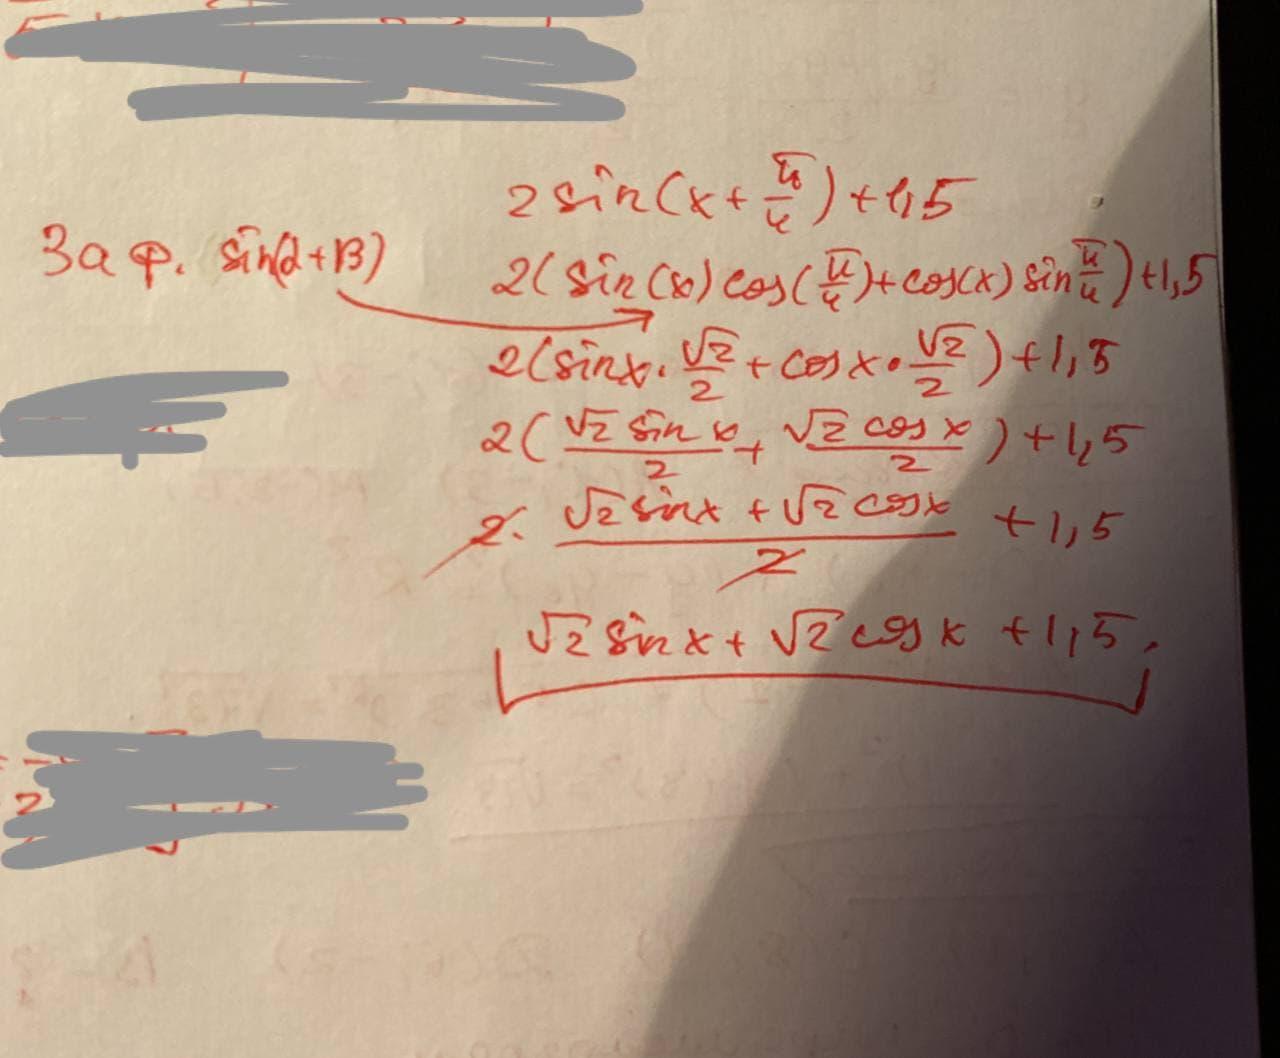 2 sin(x + π/4) + 1,5
За ф. sin(α+β)
2( sin(x) cos(π/4) + cos(x) sin π/4 ) + 1,5
2(sinx · √2/2 + cos x · √2/2 ) + 1,5
2( √2 sin x/2 + √2 cos x/2 ) + 1,5
2 · √2 sinx + √2 cosx/2 + 1,5
√2 sin x + √2 cos x + 1,5.